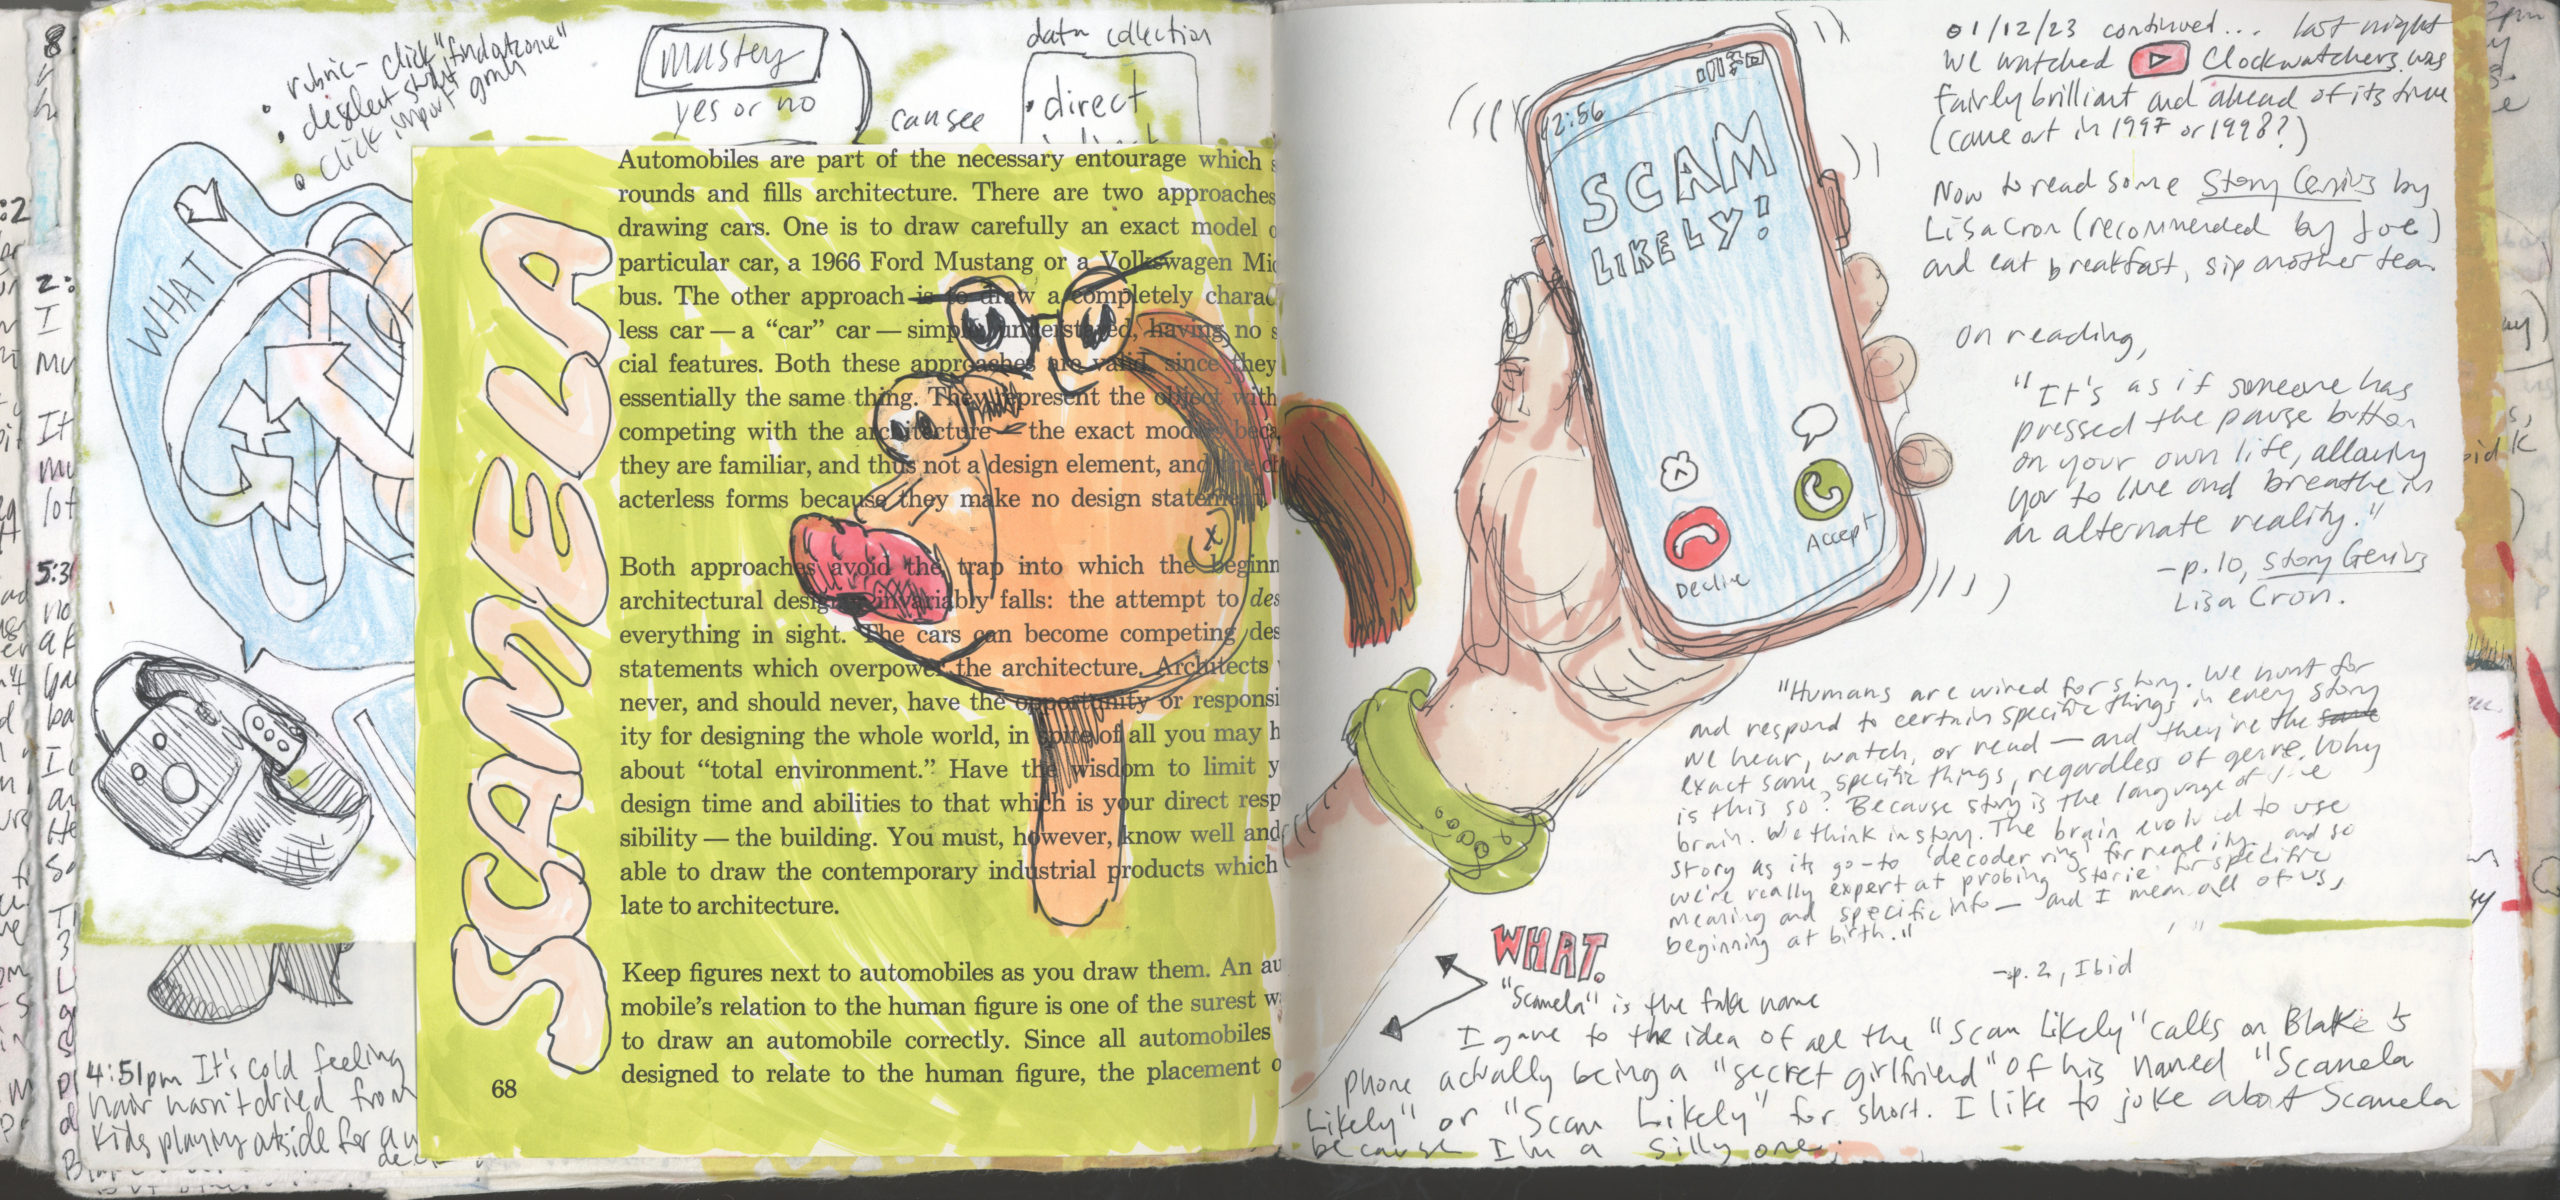 rubric- click "find outcome"
deselect
click import
mastery
yes or no
can see
data collection
direct
WHAT
SCAMELA
Automobiles are part of the necessary entourage which s
rounds and fills architecture. There are two approaches
drawing cars. One is to draw carefully an exact model o
particular car, a 1966 Ford Mustang or a Volkswagen Mic
bus. The other approach is to draw a completely charac
less car — a “car” car — simply understated, having no s
cial features. Both these approaches are valid, since they
essentially the same thing. They represent the object with
competing with the architecture — the exact model beca
they are familiar, and thus not a design element, and the ch
acterless forms because they make no design statement.
Both approaches avoid the trap into which the beginn
architectural designer invariably falls: the attempt to des
everything in sight. The cars can become competing des
statements which overpower the architecture. Architects
never, and should never, have the opportunity or responsi
ity for designing the whole world, in spite of all you may h
about “total environment.” Have the wisdom to limit y
design time and abilities to that which is your direct resp
sibility — the building. You must, however, know well and
able to draw the contemporary industrial products which
late to architecture.
Keep figures next to automobiles as you draw them. An au
mobile’s relation to the human figure is one of the surest w
to draw an automobile correctly. Since all automobiles
designed to relate to the human figure, the placement o
68
4:51pm It's cold feeling
hair hasn't dried from
kids playing outside for an
12:56
SCAM
LIKELY!
Decline
Accept
01/12/23 continued... last night
we watched Clockwatchers was
fairly brilliant and ahead of its time
(came out in 1997 or 1998?)
Now to read some Story Genius by
Lisa Cron (recommended by Joe)
and eat breakfast, sip another tea.
On reading,
"It's as if someone has
pressed the pause button
on your own life, allowing
you to live and breathe in
an alternate reality."
-p.10, Story Genius
Lisa Cron.
"Humans are wired for story. We hunt for
and respond to certain specific things in every story
we hear, watch, or read — and they're the same
exact same specific things, regardless of genre. Why
is this so? Because story is the language of the
brain. We think in story. The brain evolved to use
story as its go-to 'decoder ring' for reality, and so
we're really expert at probing stories for specific
meaning and specific info — and I mean all of us,
beginning at birth."
-p. 2, Ibid
WHAT.
"Scamela" is the fake name
I gave to the idea of all the "Scam Likely" calls on Blake's
phone actually being a "secret girlfriend" of his named "Scamela
Likely" or "Scam Likely" for short. I like to joke about Scamela
because I'm a silly one.